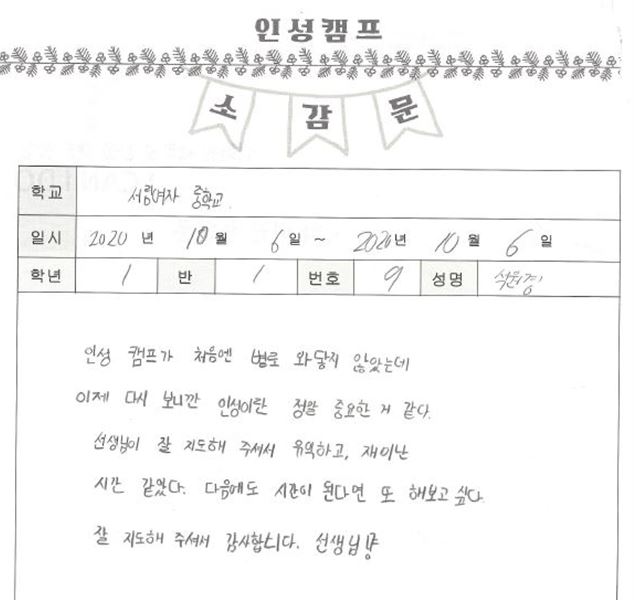 인성캠프
소감문
학교 서림여자 중학교.
일시 2020 년 10 월 6 일 ~ 2020 년 10 월 6 일
학년 1 반 1 번호 9 성명
인성 캠프가 처음엔 별로 와닿지 않았는데
이제 다시 보니깐 인성이란 정말 중요한 거 같다.
선생님이 잘 지도해 주셔서 유익하고, 재미난
시간 같았다. 다음에도 시간이 된다면 또 해보고 싶다.
잘 지도해 주셔서 감사합니다. 선생님!